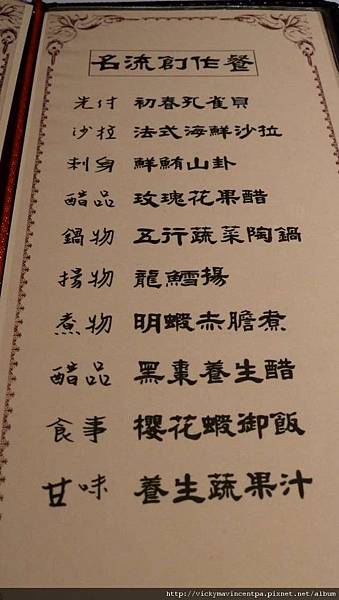 名流創作餐
先付 初春孔雀貝
沙拉 法式海鮮沙拉
刺身 鮮鮪山卦
醋品 玫瑰花果醋
鍋物 五行蔬菜陶鍋
揚物 龍鱈揚
煮物 明蝦赤膽煮
醋品 黑棗養生醋
食事 櫻花蝦御飯
甘味 養生蔬果汁
http://vickymavincentpa.pixnet.net/album